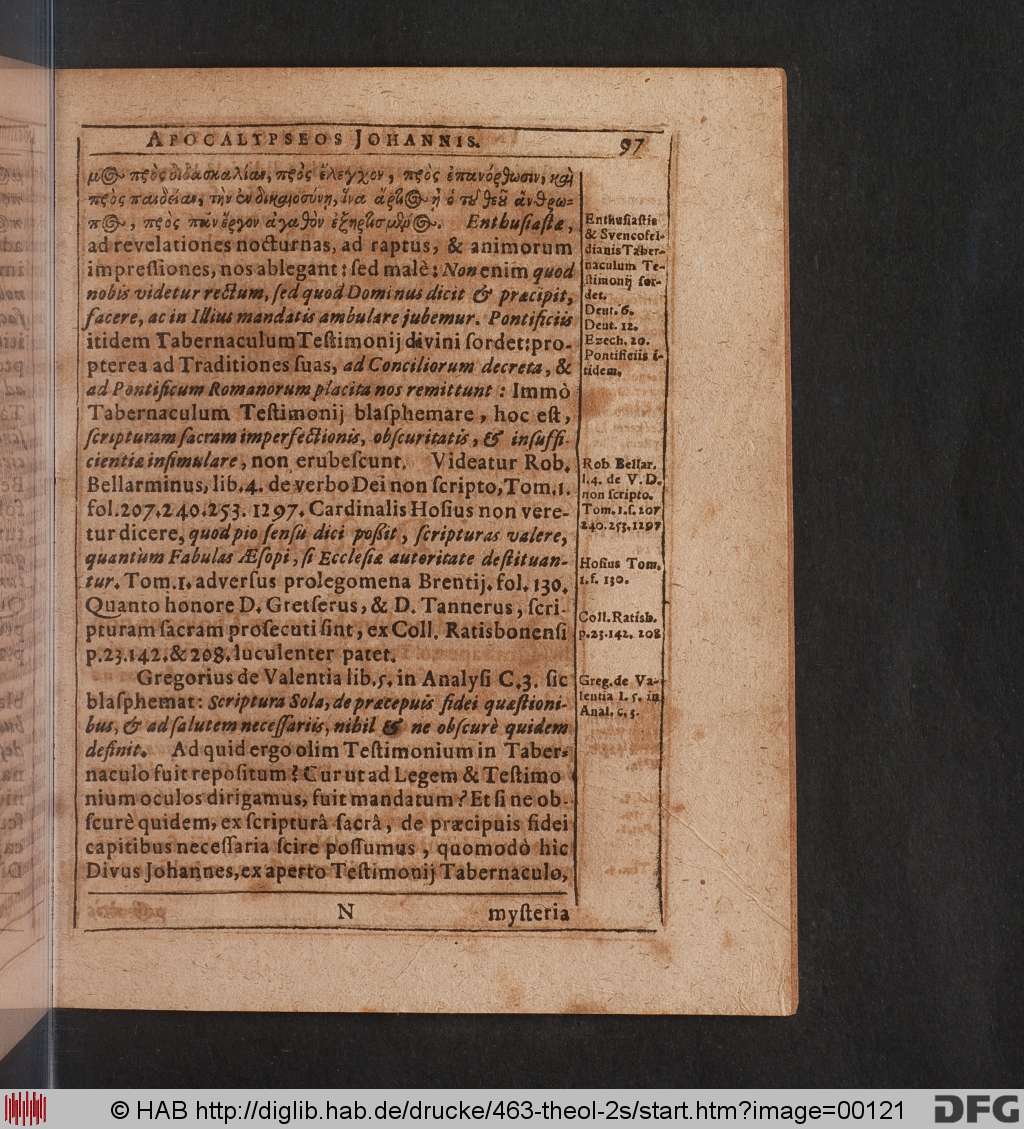 APOCALYPSEOS JOHANNIS. 97
μ&ος πρὸς διδασκαλίαν, πρὸς ἔλεγχον, πρὸς ἐπανόρθωσιν, καὶ
πρὸς παιδείαν, τὴν ἐν δικαιοσύνῃ, ἵνα ἄρτιος ᾖ ὁ τοῦ θεοῦ ἄνθρω=
πος, πρὸς πᾶν ἔργον ἀγαθὸν ἐξηρτισμένος. Enthusiastæ,
ad revelationes nocturnas, ad raptus, & animorum
impreſſiones, nos ablegant: ſed malè: Non enim quod
nobis videtur rectum, ſed quod Dominus dicit & præcipit,
facere, ac in Illius mandatis ambulare jubemur. Pontificiis
itidem Tabernaculum Teſtimonij divini ſordet: pro-
pterea ad Traditiones ſuas, ad Conciliorum decreta, &
ad Pontificum Romanorum placita nos remittunt: Immò
Tabernaculum Teſtimonij blaſphemare, hoc eſt,
ſcripturam ſacram imperfectionis, obſcuritatis, & inſuffi-
cientiæ inſimulare, non erubeſcunt. Videatur Rob.
Bellarminus, lib. 4. de verbo Dei non ſcripto, Tom. 1.
fol. 207. 240. 253. 1297. Cardinalis Hoſius non vere-
tur dicere, quod pio ſenſu dici poßit, ſcripturas valere,
quantum Fabulas Æſopi, ſi Eccleſiæ autoritate deſtituan-
tur. Tom. 1. adverſus prolegomena Brentij. fol. 130.
Quanto honore D. Gretſerus, & D. Tannerus, ſcri-
pturam ſacram proſecuti ſint, ex Coll. Ratisbonenſi
p. 23. 142. & 208. luculenter patet.
Gregorius de Valentia lib. 5. in Analyſi C. 3. ſic
blaſphemat: Scriptura Sola, de præcepuis fidei quæſtioni-
bus, & ad ſalutem neceſſariis, nihil & ne obſcurè quidem
definit. Ad quid ergo olim Teſtimonium in Taber=
naculo fuit repoſitum? Cur ut ad Legem & Teſtimo
nium oculos dirigamus, fuit mandatum? Et ſi ne ob-
ſcurè quidem, ex ſcripturâ ſacrâ, de præcipuis fidei
capitibus neceſſaria ſcire poſſumus, quomodò hic
Divus Johannes, ex aperto Teſtimonij Tabernaculo,
N myſteria
Enthuſiaſtis
& Svencofel-
dianis Taber-
naculum Te-
ſtimonij ſor-
det.
Deut. 6.
Deut. 12.
Ezech. 20.
Pontificiis i-
tidem.
Rob Bellar.
l. 4. de V. D.
non ſcripto.
Tom. 1. f. 207
240. 253. 1297
Hoſius Tom.
1. f. 130.
Coll. Ratisb.
p. 23. 142. 208
Greg. de Va-
lentia l. 5. in
Anal. c. 3.
© HAB http://diglib.hab.de/drucke/463-theol-2s/start.htm?image=00121
DFG